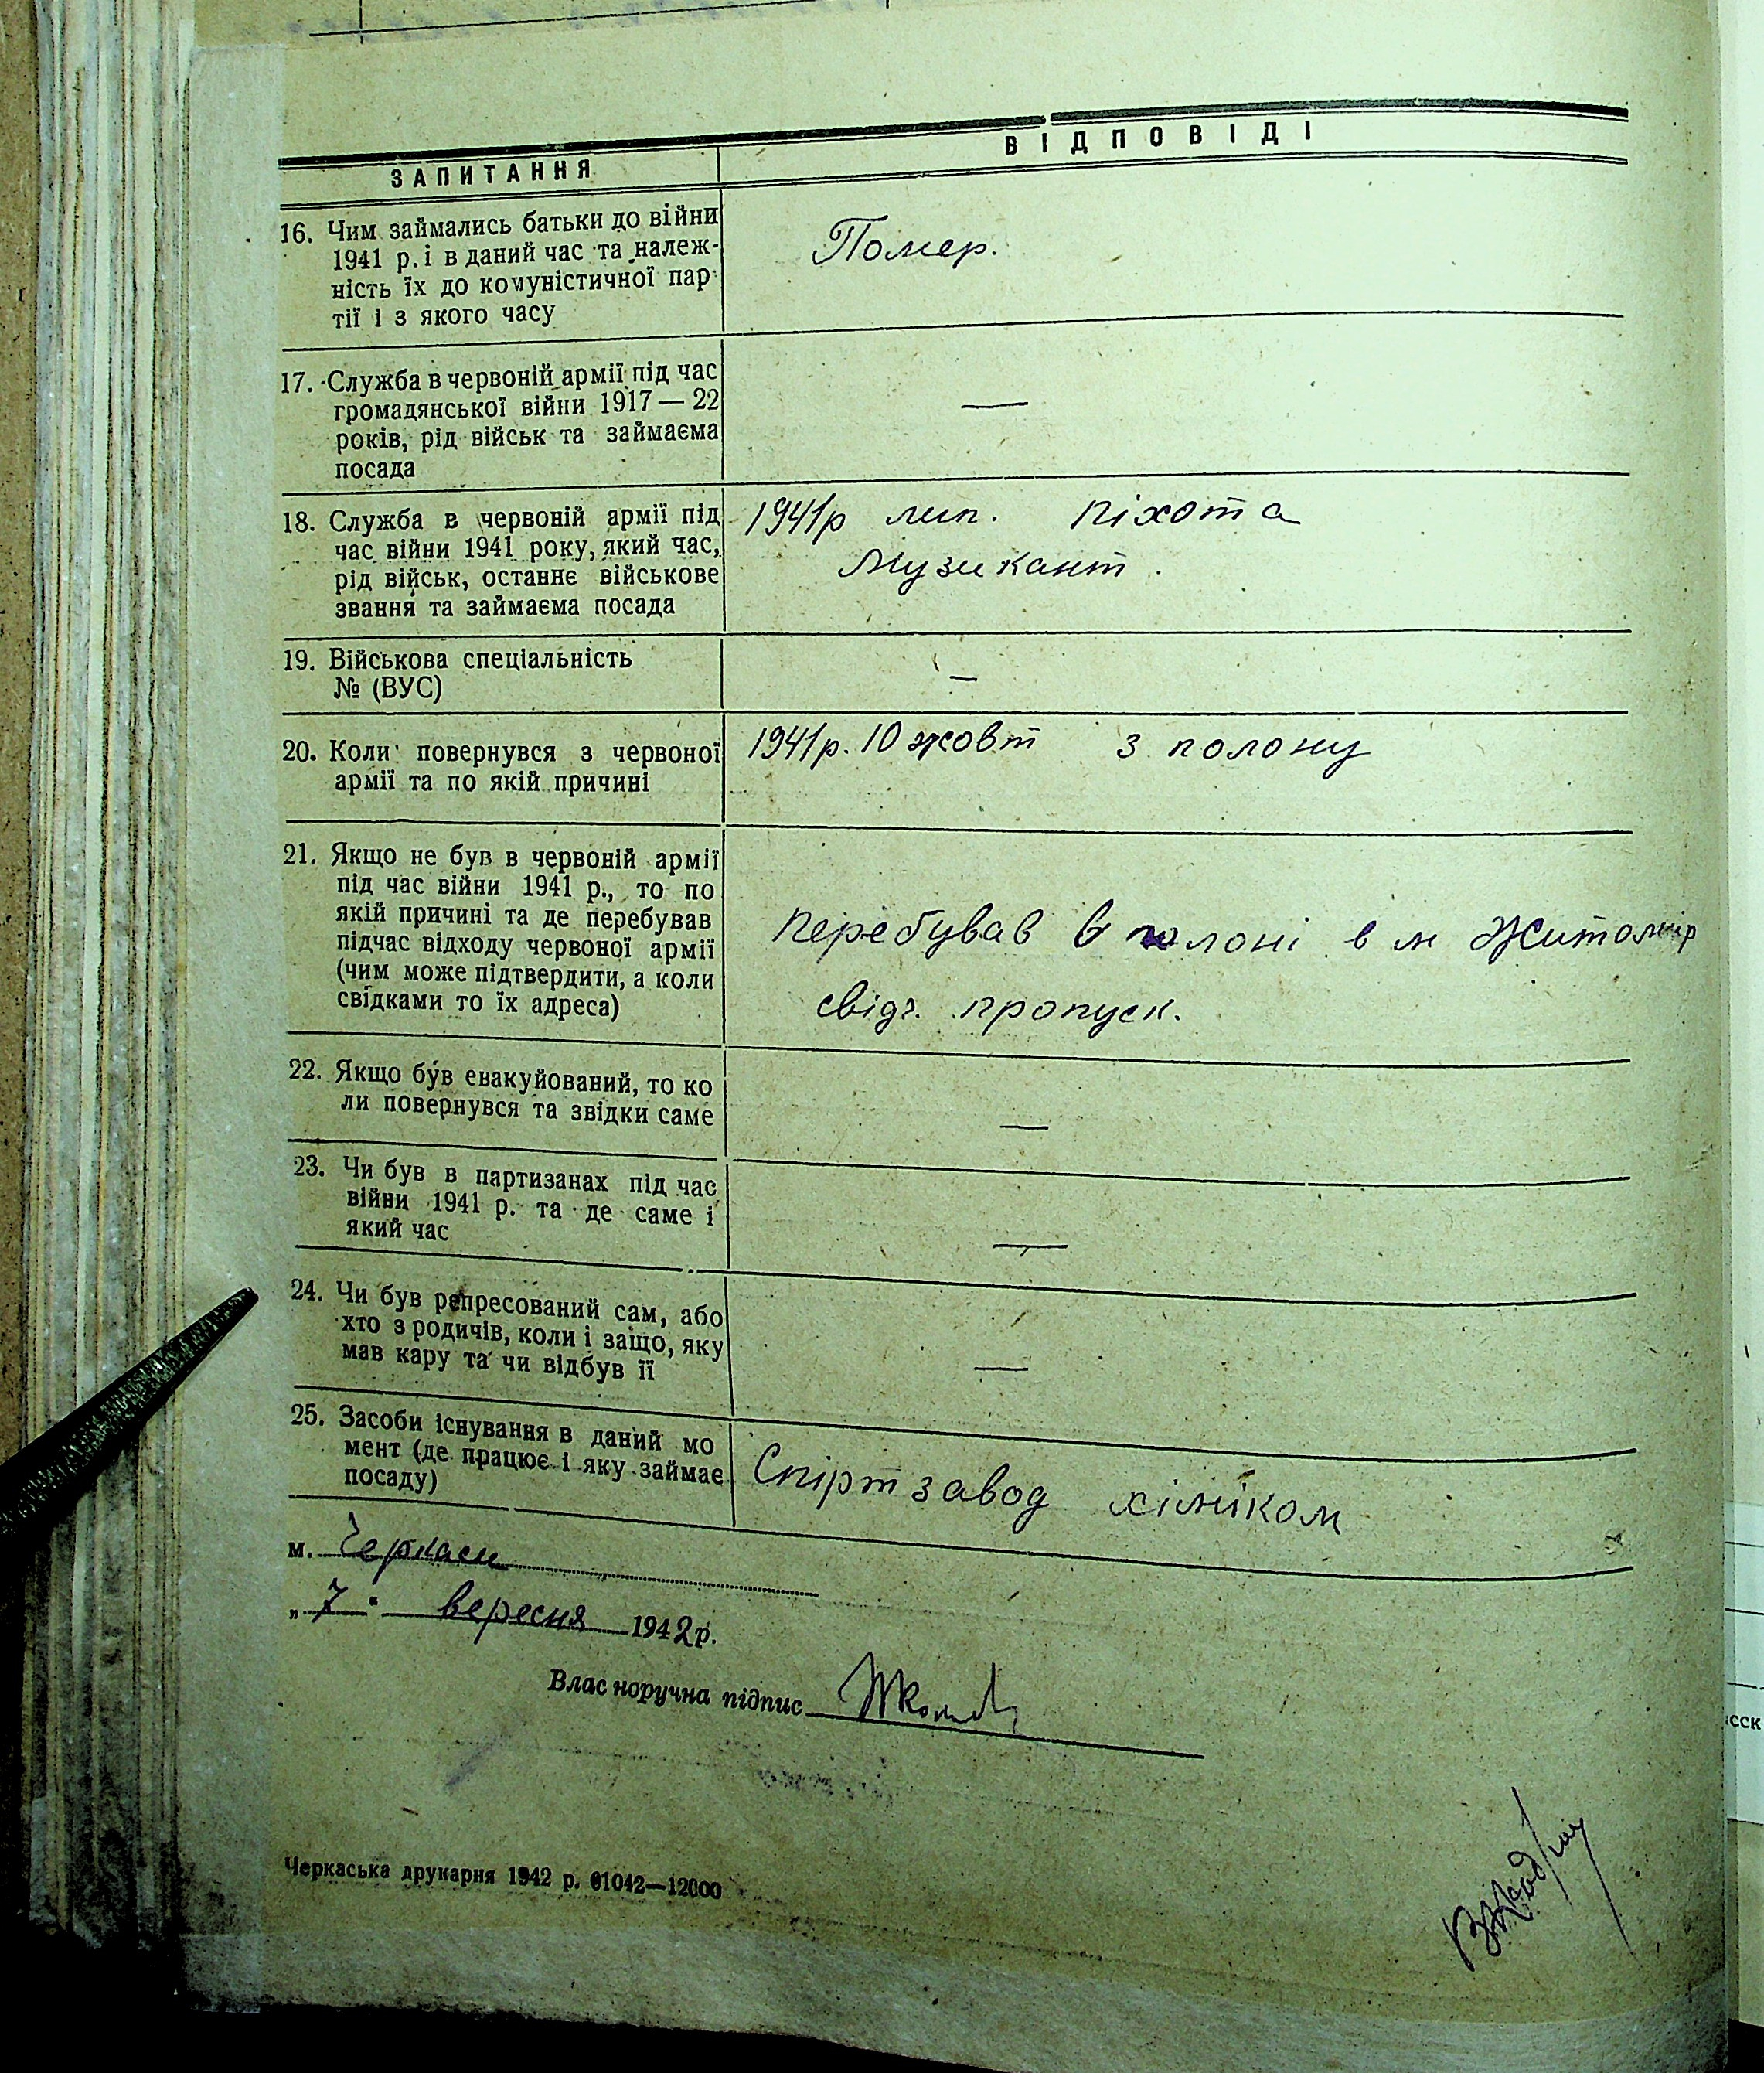 ЗАПИТАННЯ
ВІДПОВІДІ
16. Чим займались батьки до війни
1941 р. і в даний час та належ-
ність їх до комуністичної пар-
тії і з якого часу
Помер.
17. Служба в червоній армії під час
громадянської війни 1917—22
років, рід військ та займаєма
посада
—
18. Служба в червоній армії під
час війни 1941 року, який час,
рід військ, останнє військове
звання та займаєма посада
1941р лип. піхота
Музикант.
19. Військова спеціальність
№ (ВУС)
—
20. Коли повернувся з червоної
армії та по якій причині
1941р. 10 жовт з полону
21. Якщо не був в червоній армії
під час війни 1941 р., то по
якій причині та де перебував
підчас відходу червоної армії
(чим може підтвердити, а коли
свідками то їх адреса)
перебував в полоні в м Житомир
свідч. пропуск.
22. Якщо був евакуйований, то ко
ли повернувся та звідки саме
—
23. Чи був в партизанах під час
війни 1941 р. та де саме і
який час
—
24. Чи був репресований сам, або
хто з родичів, коли і защо, яку
мав кару та чи відбув її
—
25. Засоби існування в даний мо
мент (де працює і яку займає
посаду)
Спіртзавод хіміком
м. Черкаси
„7" вересня 1942р.
Власноручна підпис
Черкаська друкарня 1942 р. 01042—12000
сск